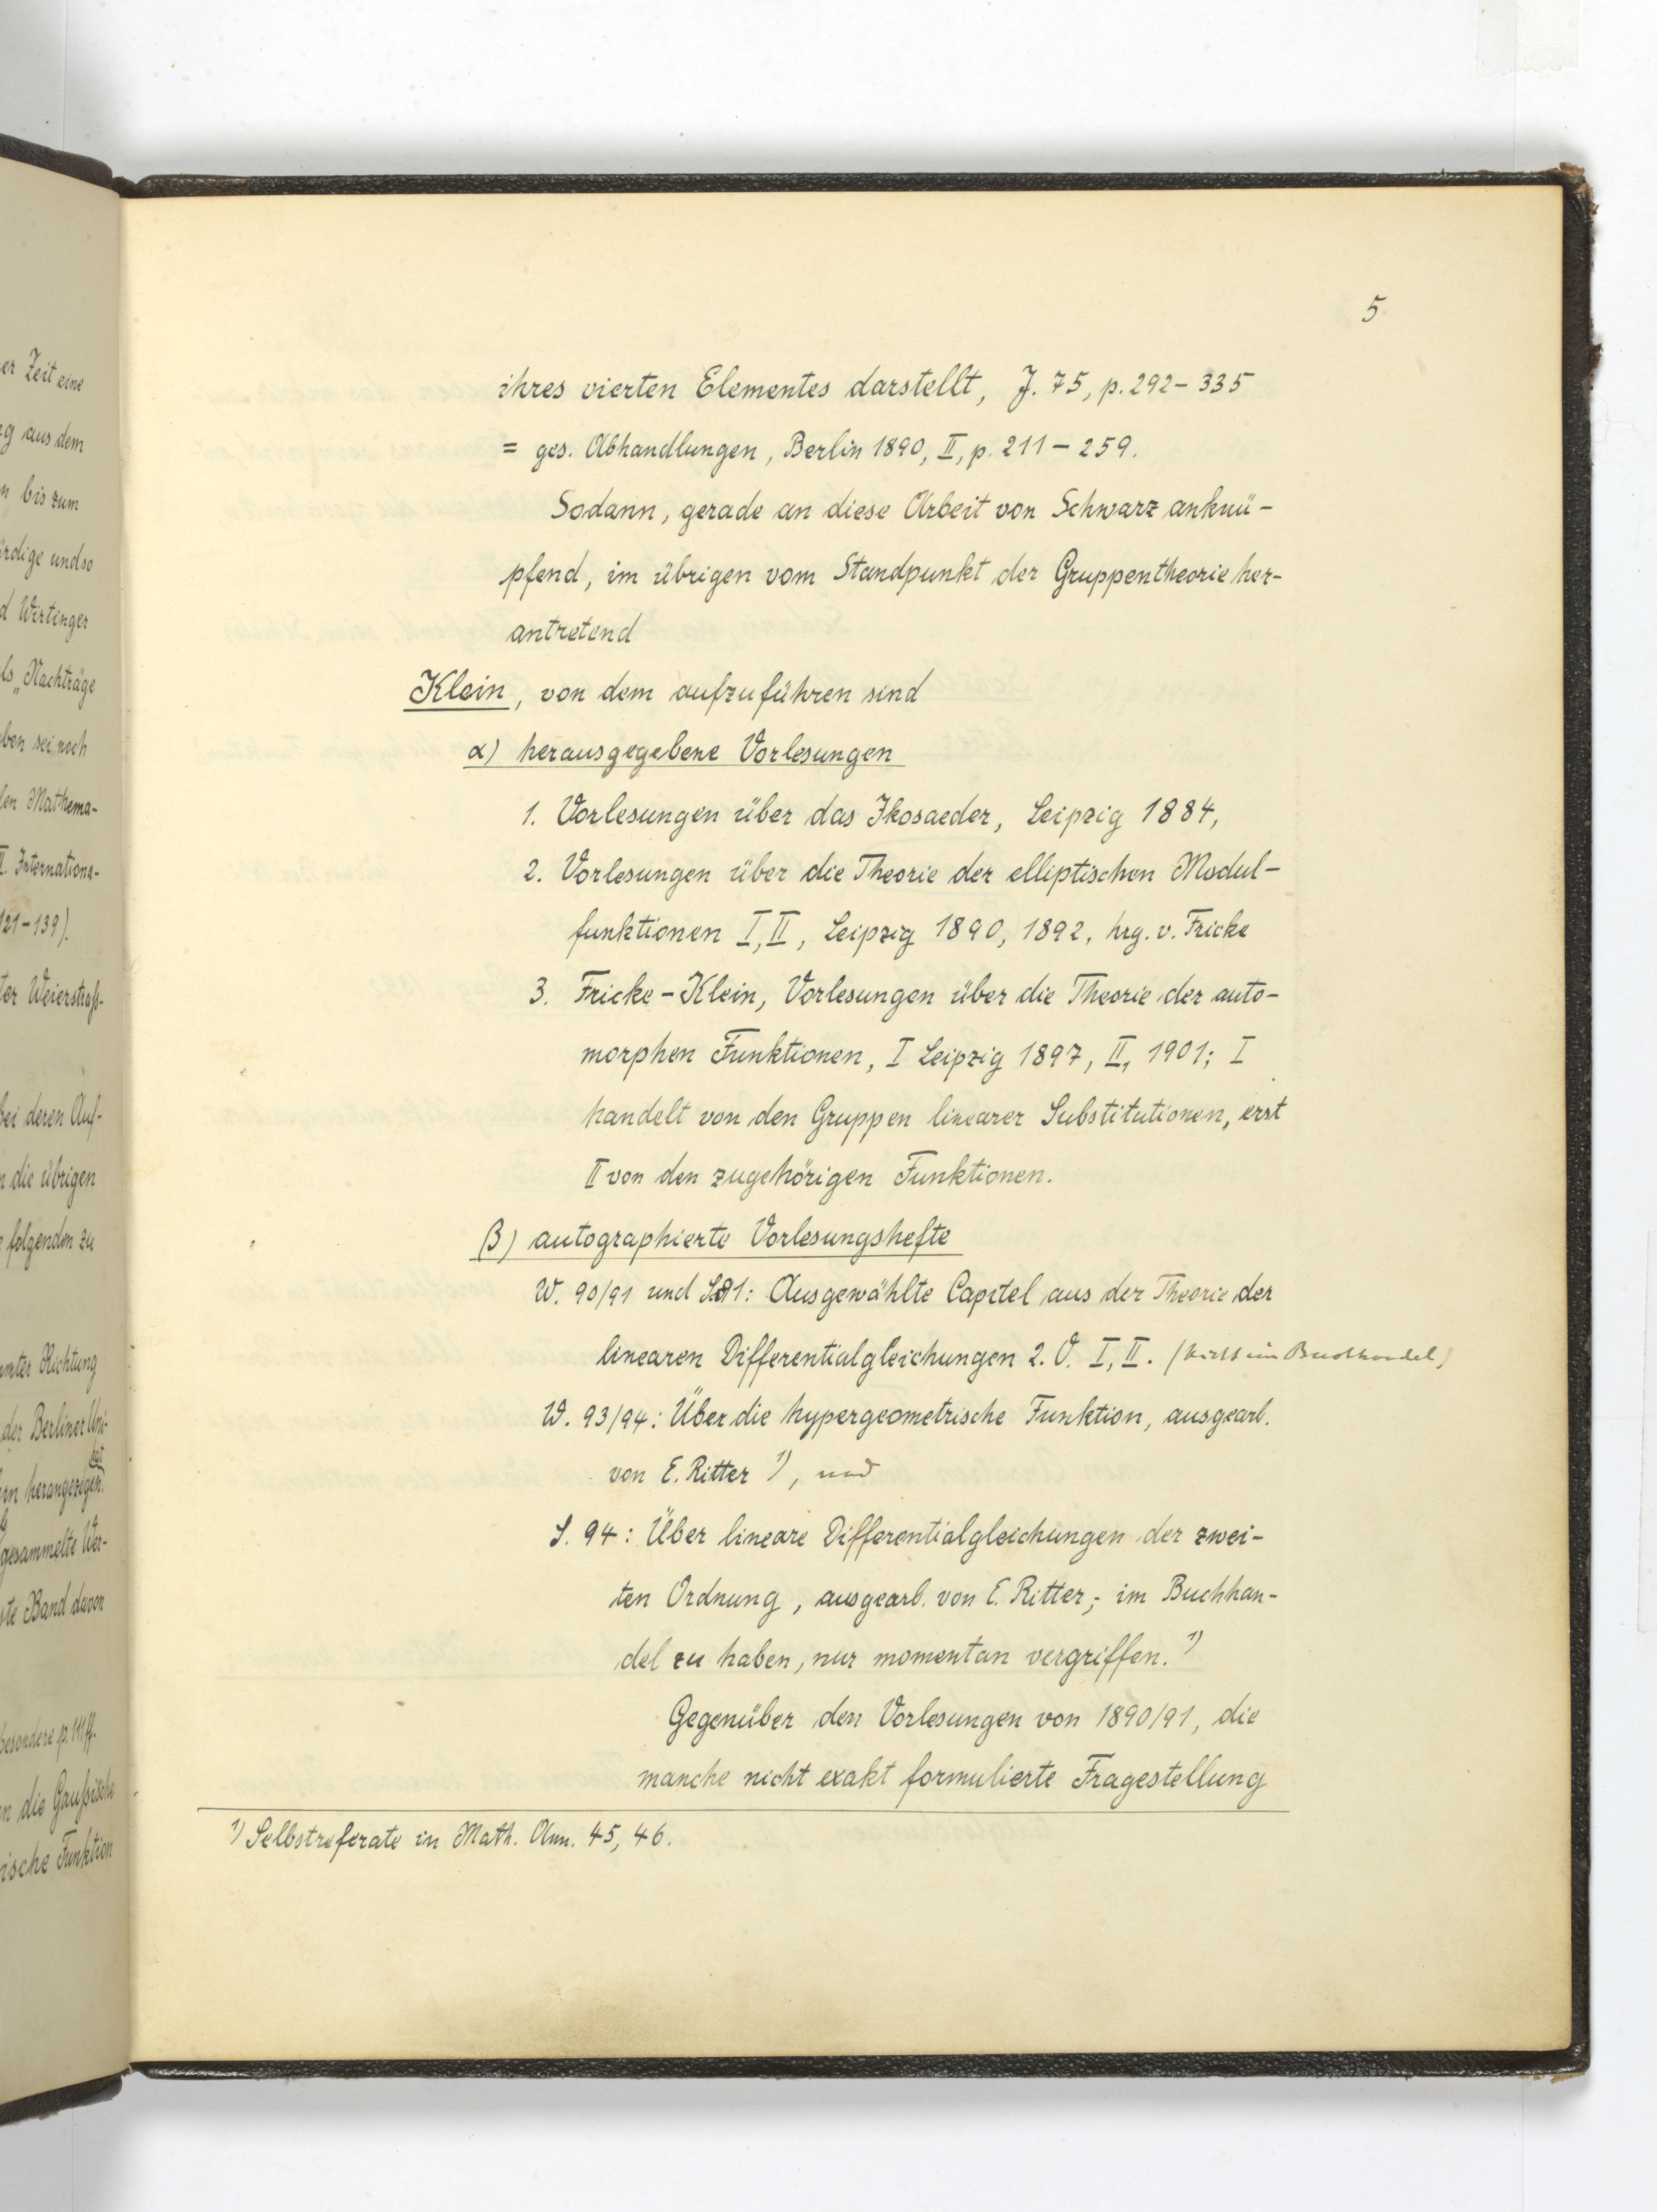 5
ihres vierten Elementes darstellt, J. 75, p. 292-335
= ges. Abhandlungen, Berlin 1890, II, p. 211-259.
Sodann, gerade an diese Arbeit von Schwarz anknü-
pfend, im übrigen vom Standpunkt der Gruppentheorie her-
antretend
Klein, von dem aufzuführen sind
α) herausgegebene Vorlesungen
1. Vorlesungen über das Ikosaeder, Leipzig 1884,
2. Vorlesungen über die Theorie der elliptischen Modul-
funktionen I, II, Leipzig 1890, 1892, hrg. v. Fricke
3. Fricke-Klein, Vorlesungen über die Theorie der auto-
morphen Funktionen, I Leipzig 1897, II, 1901; I
handelt von den Gruppen linearer Substitutionen, erst
II von den zugehörigen Funktionen.
β) autographierte Vorlesungshefte
W. 90/91 und S. 91: Ausgewählte Capitel aus der Theorie der
linearen Differentialgleichungen 2. O. I, II. (nicht im Buchhandel)
W. 93/94: Über die hypergeometrische Funktion, ausgearb.
von E. Ritter 1), und
S. 94: Über lineare Differentialgleichungen der zwei-
ten Ordnung, ausgearb. von E. Ritter; im Buchhan-
del zu haben, nur momentan vergriffen. 1)
Gegenüber den Vorlesungen von 1890/91, die
manche nicht exakt formulierte Fragestellung
1) Selbstreferate in Math. Ann. 45, 46.
er Zeit eine
g aus dem
n bis zum
rdige und so
d Wirtinger
ls „Nachträge
ben sei noch
len Mathema-
I. Internationa-
121-139).
ter Weierstraß-
bei deren Auf-
n die übrigen
e folgenden zu
nnter Richtung
der Berliner Uni-
rn herangezogen.
gesammelte Wer-
ste Band davon
besondere p. 111 ff.
n die Gaußische
ische Funktion